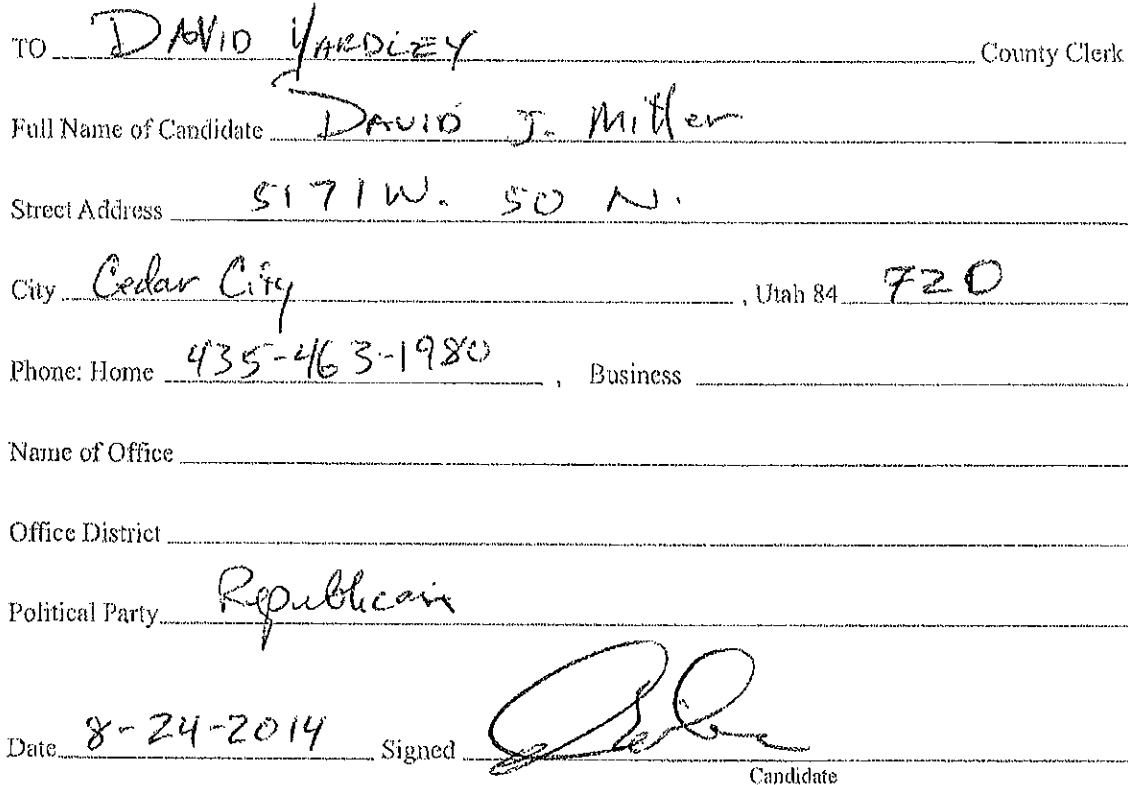 TO DAVID YARDLEY County Clerk
Full Name of Candidate DAVID J. Miller
Street Address 5171 W. 50 N.
City Cedar City , Utah 84 720
Phone: Home 435-463-1980 , Business
Name of Office
Office District
Political Party Republican
Date 8-24-2014 Signed
Candidate